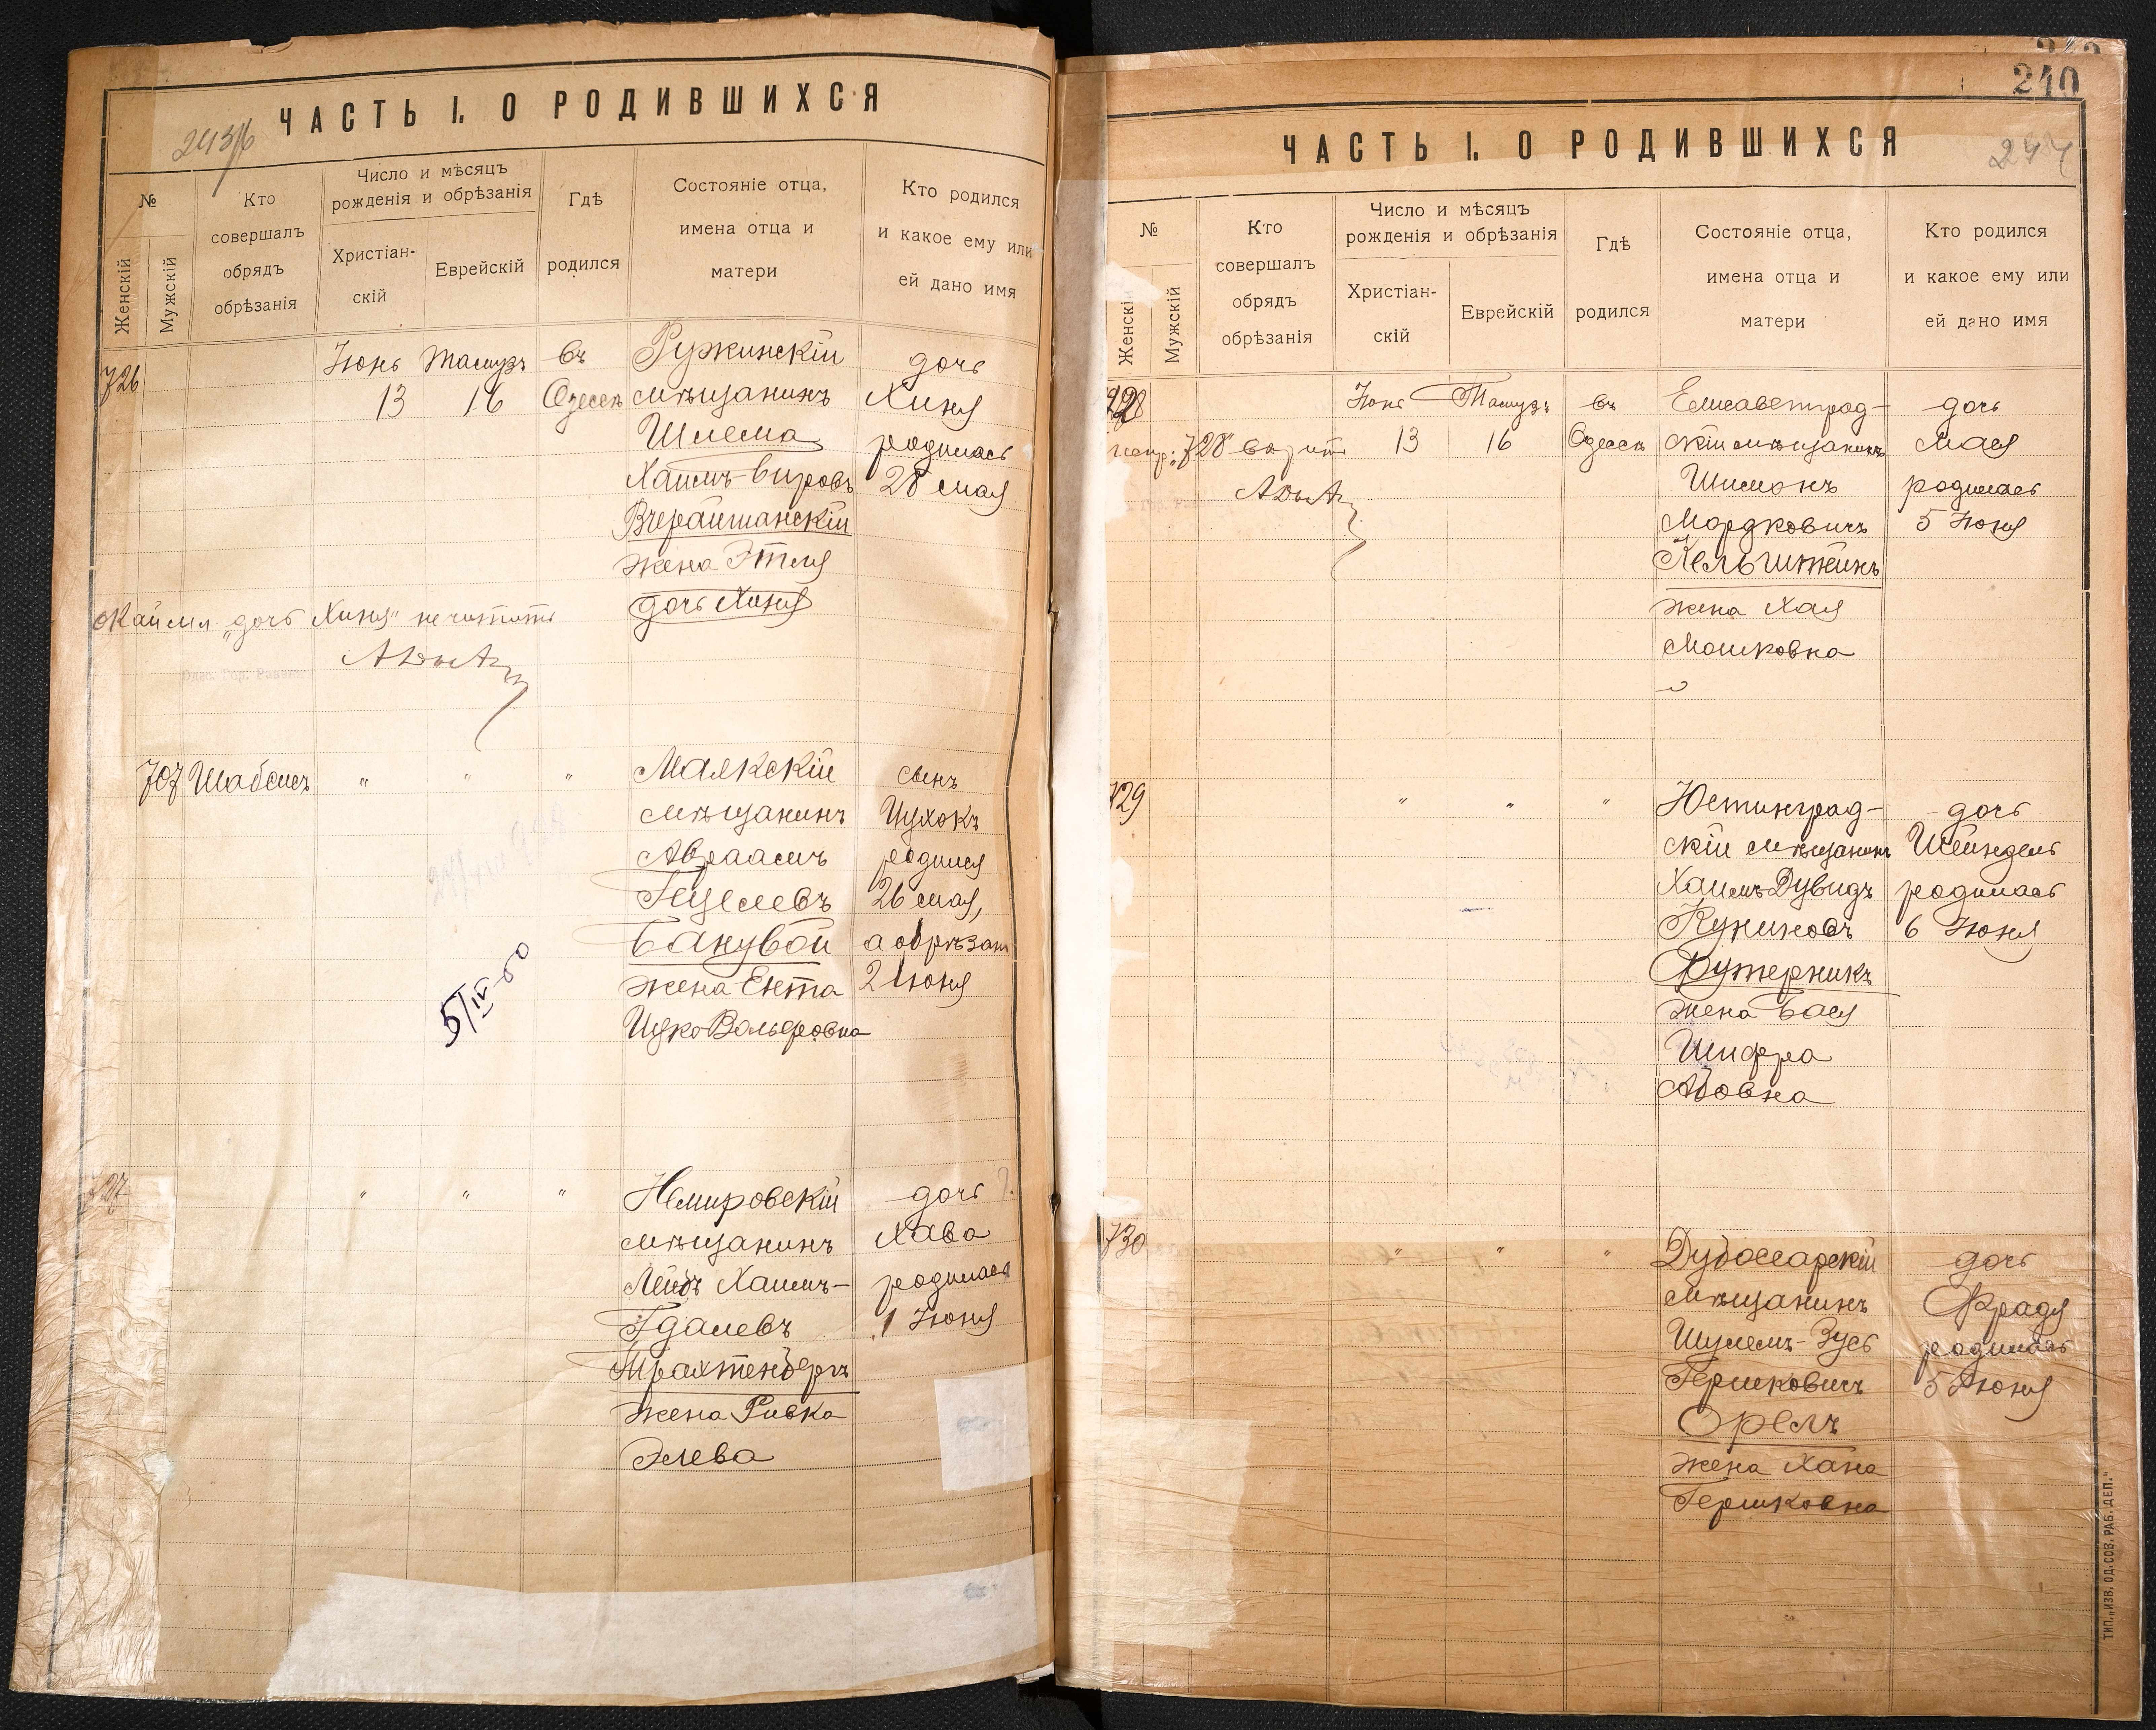 ЧАСТЬ I. О РОДИВШИХСЯ
№
Женскій
Мужскій
Кто
совершалъ
обрядъ
обрѣзанія
Число и мѣсяцъ
рожденія и обрѣзанія
Христіан-
скій
Еврейскій
Гдѣ
родился
Состояніе отца,
имена отца и
матери
Кто родился
и какое ему или
ей дано имя
726
Іюнь
13
Тамузъ
16
въ
Одессѣ
Ружинскій
мѣщанинъ
Шлема
Хаимъ-
Вчерайшанскій
жена Этля
дочь Хиня
дочь
Хиня
родилась
28 мая
„дочь Хиня" не читать
707
Шабсисъ
"
"
"
Маякскій
мѣщанинъ
Авраамъ
Гецелевъ
Банувой
жена Ента
Ицко Вольфовна
сынъ
Ицхокъ
родился
26 мая,
а обрѣзан
2 Іюня
5/IV-60
727
"
"
"
Немировскій
мѣщанинъ
Лейбъ Хаимъ-
Гдалевъ
Трахтенбергъ
жена Ривка
Элева
дочь
Хава
родилась
1 Іюня
240
ЧАСТЬ I. О РОДИВШИХСЯ
№
Женскій
Мужскій
Кто
совершалъ
обрядъ
обрѣзанія
Число и мѣсяцъ
рожденія и обрѣзанія
Христіан-
скій
Еврейскій
Гдѣ
родился
Состояніе отца,
имена отца и
матери
Кто родился
и какое ему или
ей дано имя
728
испр. „728" вѣрить
Іюнь
13
Тамузъ
16
въ
Одессѣ
Елисаветград-
скій мѣщанинъ
Шимонъ
Мордковичъ
Кельштейнъ
жена Хая
Мошковна
дочь
Мая
родилась
5 Іюня
729
"
"
"
Юстинград-
скій мѣщанинъ
Хаимъ Дувидъ
Куниновъ
Футерникъ
жена Бася
Шифра
Абовна
дочь
Шейндель
родилась
6 Іюня
730
"
"
"
Дубоссарскій
мѣщанинъ
Шулемъ-Зусь
Гершковичъ
Орелъ
жена Хана
Гершковна
дочь
Фрадя
родилась
5 Іюня
ТИП. „ИЗВ. ОД. СОВ. РАБ. ДЕП."